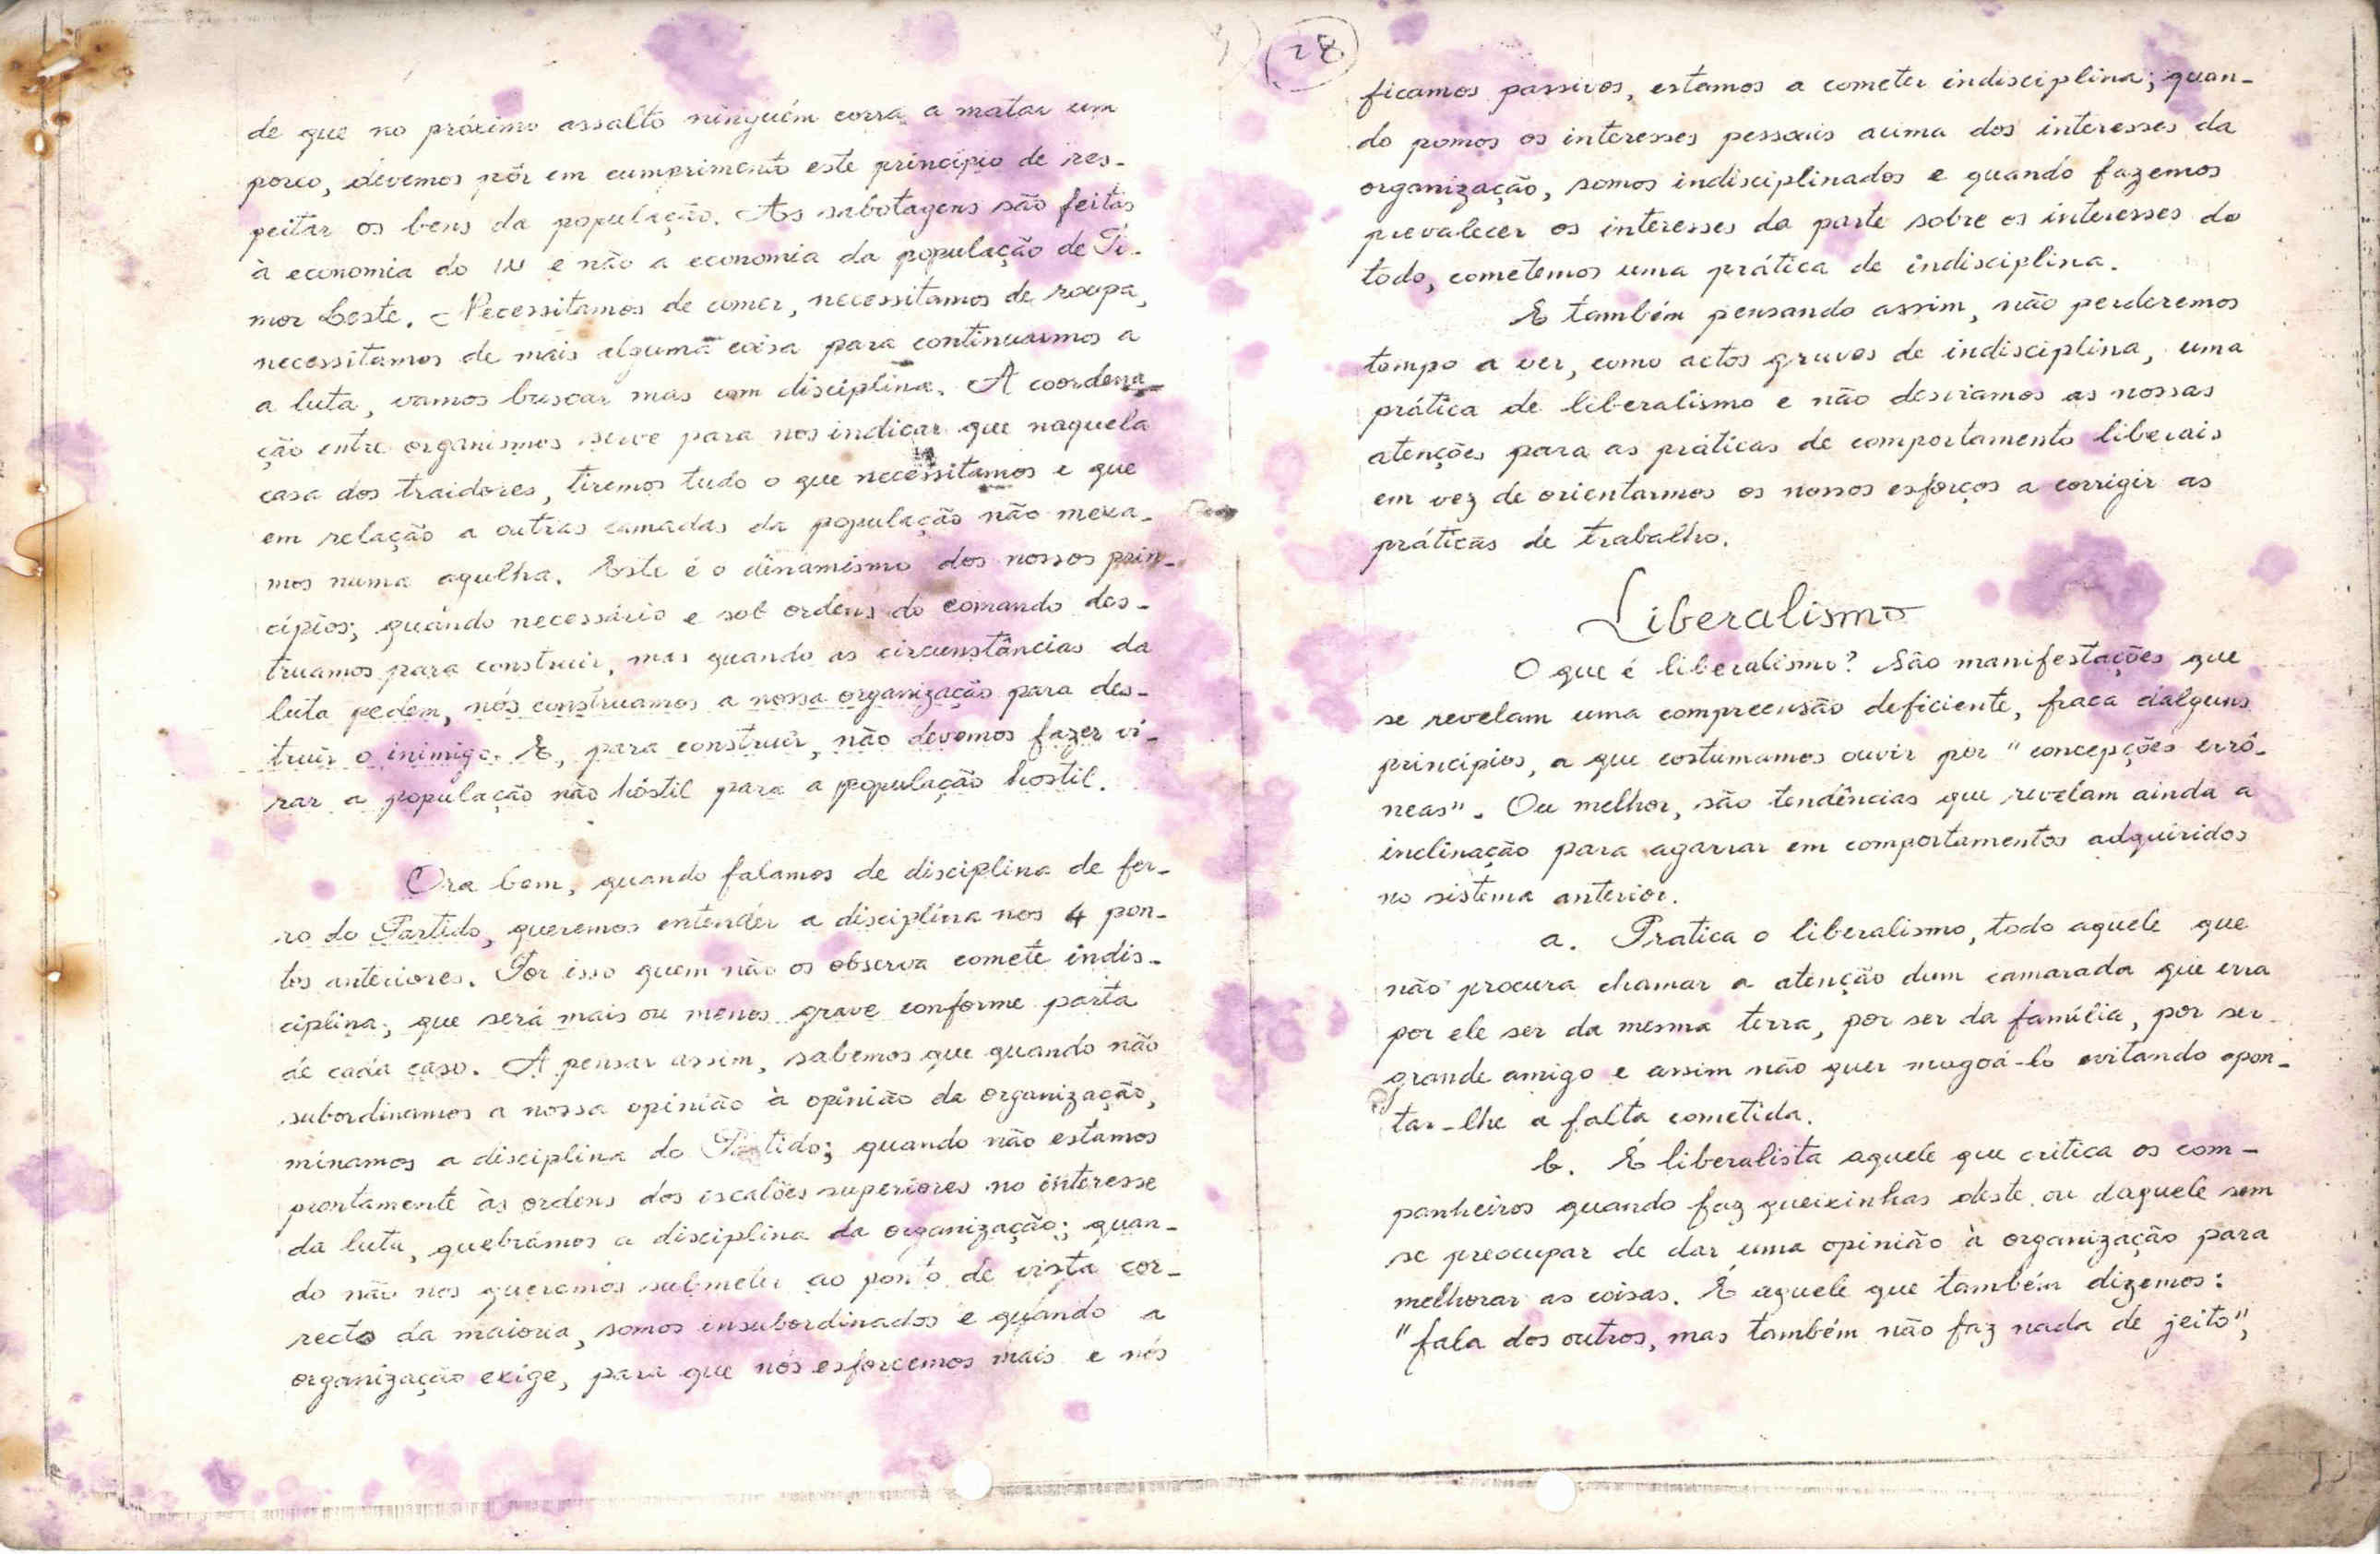 de que no próximo assalto ninguém corra a matar um
porco, devemos pôr em cumprimento este princípio de res-
peitar os bens da população. As sabotagens são feitas
à economia do in e não a economia da população de Ti-
mor Leste. Necessitamos de comer, necessitamos de roupa,
necessitamos de mais alguma coisa para continuarmos a
a luta, vamos buscar mas com disciplina. A coordena-
ção entre organismos serve para nos indicar que naquela
casa dos traidores, tiremos tudo o que necessitamos e que
em relação a outras camadas da população não mexa-
mos numa agulha. Este é o dinamismo dos nossos prin-
cípios; quando necessário e sob ordens do comando des-
truamos para construir, mas quando as circunstâncias da
luta pedem, nós construamos a nossa organização para des-
truir o inimigo. E, para construir, não devemos fazer vi-
rar a população não hóstil para a população hostil.
Ora bem, quando falamos de disciplina de fer-
ro do Partido, queremos entender a disciplina nos 4 pon-
tos anteriores. Por isso quem não os observa comete indis-
ciplina, que será mais ou menos grave conforme parta
de cada caso. A pensar assim, sabemos que quando não
subordinamos a nossa opinião à opinião da organização,
minamos a disciplina do Partido; quando não estamos
prontamente às ordens dos escalões superiores no interesse
da luta, quebrámos a disciplina da organização; quan-
do não nos queremos submeter ao ponto de vista cor-
recto da maioria, somos insubordinados e quando a
organização exige, para que nós esforcemos mais e nós
28
ficamos passivos, estamos a cometer indisciplina; quan-
do pomos os interesses pessoais acima dos interesses da
organização, somos indisciplinados e quando fazemos
prevalecer os interesses da parte sobre os interesses do
todo, cometemos uma prática de indisciplina.
E também pensando assim, não perderemos
tempo a ver, como actos graves de indisciplina, uma
prática de liberalismo e não desviamos as nossas
atenções para as práticas de comportamento liberais
em vez de orientarmos os nossos esforços a corrigir as
práticas de trabalho.
Liberalismo
O que é liberalismo? São manifestações que
se revelam uma compreensão deficiente, fraca dalguns
princípios, a que costumamos ouvir por "concepções errô-
neas". Ou melhor, são tendências que revelam ainda a
inclinação para agarrar em comportamentos adquiridos
no sistema anterior.
a. Pratica o liberalismo, todo aquele que
não procura chamar a atenção dum camarada que erra
por ele ser da mesma terra, por ser da família, por ser
grande amigo e assim não quer magoá-lo evitando apon-
tar-lhe a falta cometida.
b. É liberalista aquele que critica os com-
panheiros quando faz queixinhas deste ou daquele sem
se preocupar de dar uma opinião à organização para
melhorar as coisas. É aquele que também dizemos:
"fala dos outros, mas também não faz nada de jeito",